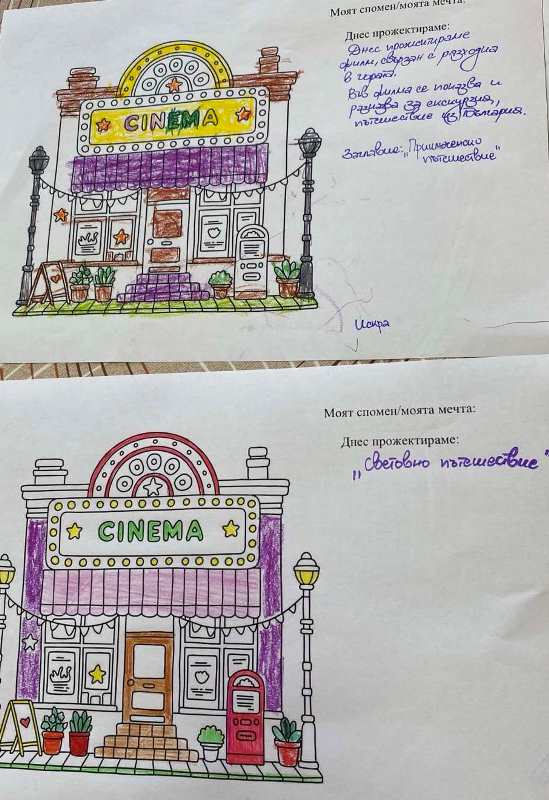 Моят спомен/моята мечта:
Днес прожектираме:
Днес прожитираме
филм, свързан с разходка
в гората.
Във филма се показва и
разказва за екскурзия,
пътешествие из България.
Заглавие: „Приключенско
пътешествие"
CINEMA
Искра
Моят спомен/моята мечта:
Днес прожектираме:
„Световно пътешествие"
CINEMA